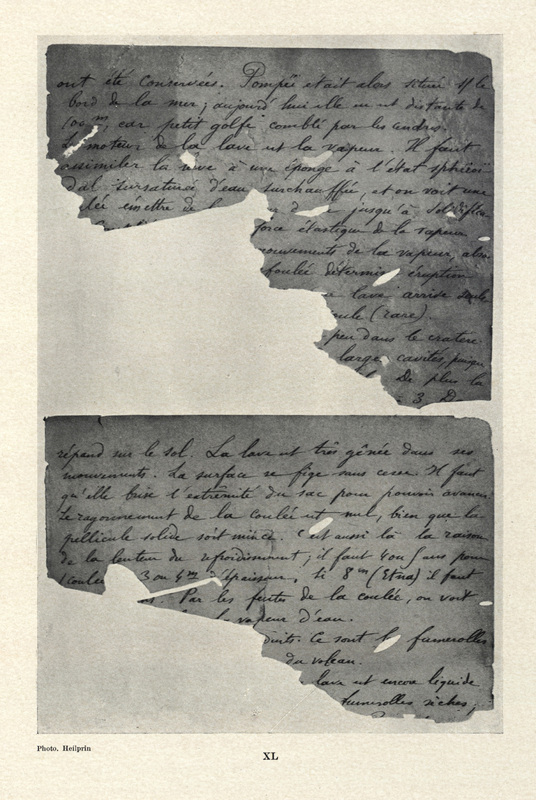 ont été conservées. Pompéi etait alors située s/ le
bord de la mer; aujourd'hui elle en est distante de
100m, car petit golfe comblé par les cendres.
Le moteur de la lave est la vapeur. Il faut
assimiler la lave à une éponge à l'état sphéroï
dal sursaturée d'eau surchauffée, et on voit une
lée émettre de jusqu'à
force élastique de la vapeur
mouvements de la vapeur, alors
foulée détermine éruption
lave arrive seule
(rare).
peu dans le cratère
larges cavités, puisqu
De plus la
à 3
répand sur le sol. La lave est très gênée dans ses
mouvements. La surface se fige sans cesse. Il faut
qu'elle brise l'extrémité du sac pour pouvoir avancer.
Le rayonnement de la coulée est nul, bien que la
pellicule solide soit mince. C'est aussi là la raison
de la lenteur du refroidissement; il faut 4 ou 5 ans pour
1 coulée 3 ou 4m d'épaisseur, si 8m (Etna) il faut
Par les fentes de la coulée, on voit
la vapeur d'eau.
duits. Ce sont fumerolles
du volcan.
lave est encore liquide
fumerolles sèches,
Photo. Heilprin
XL